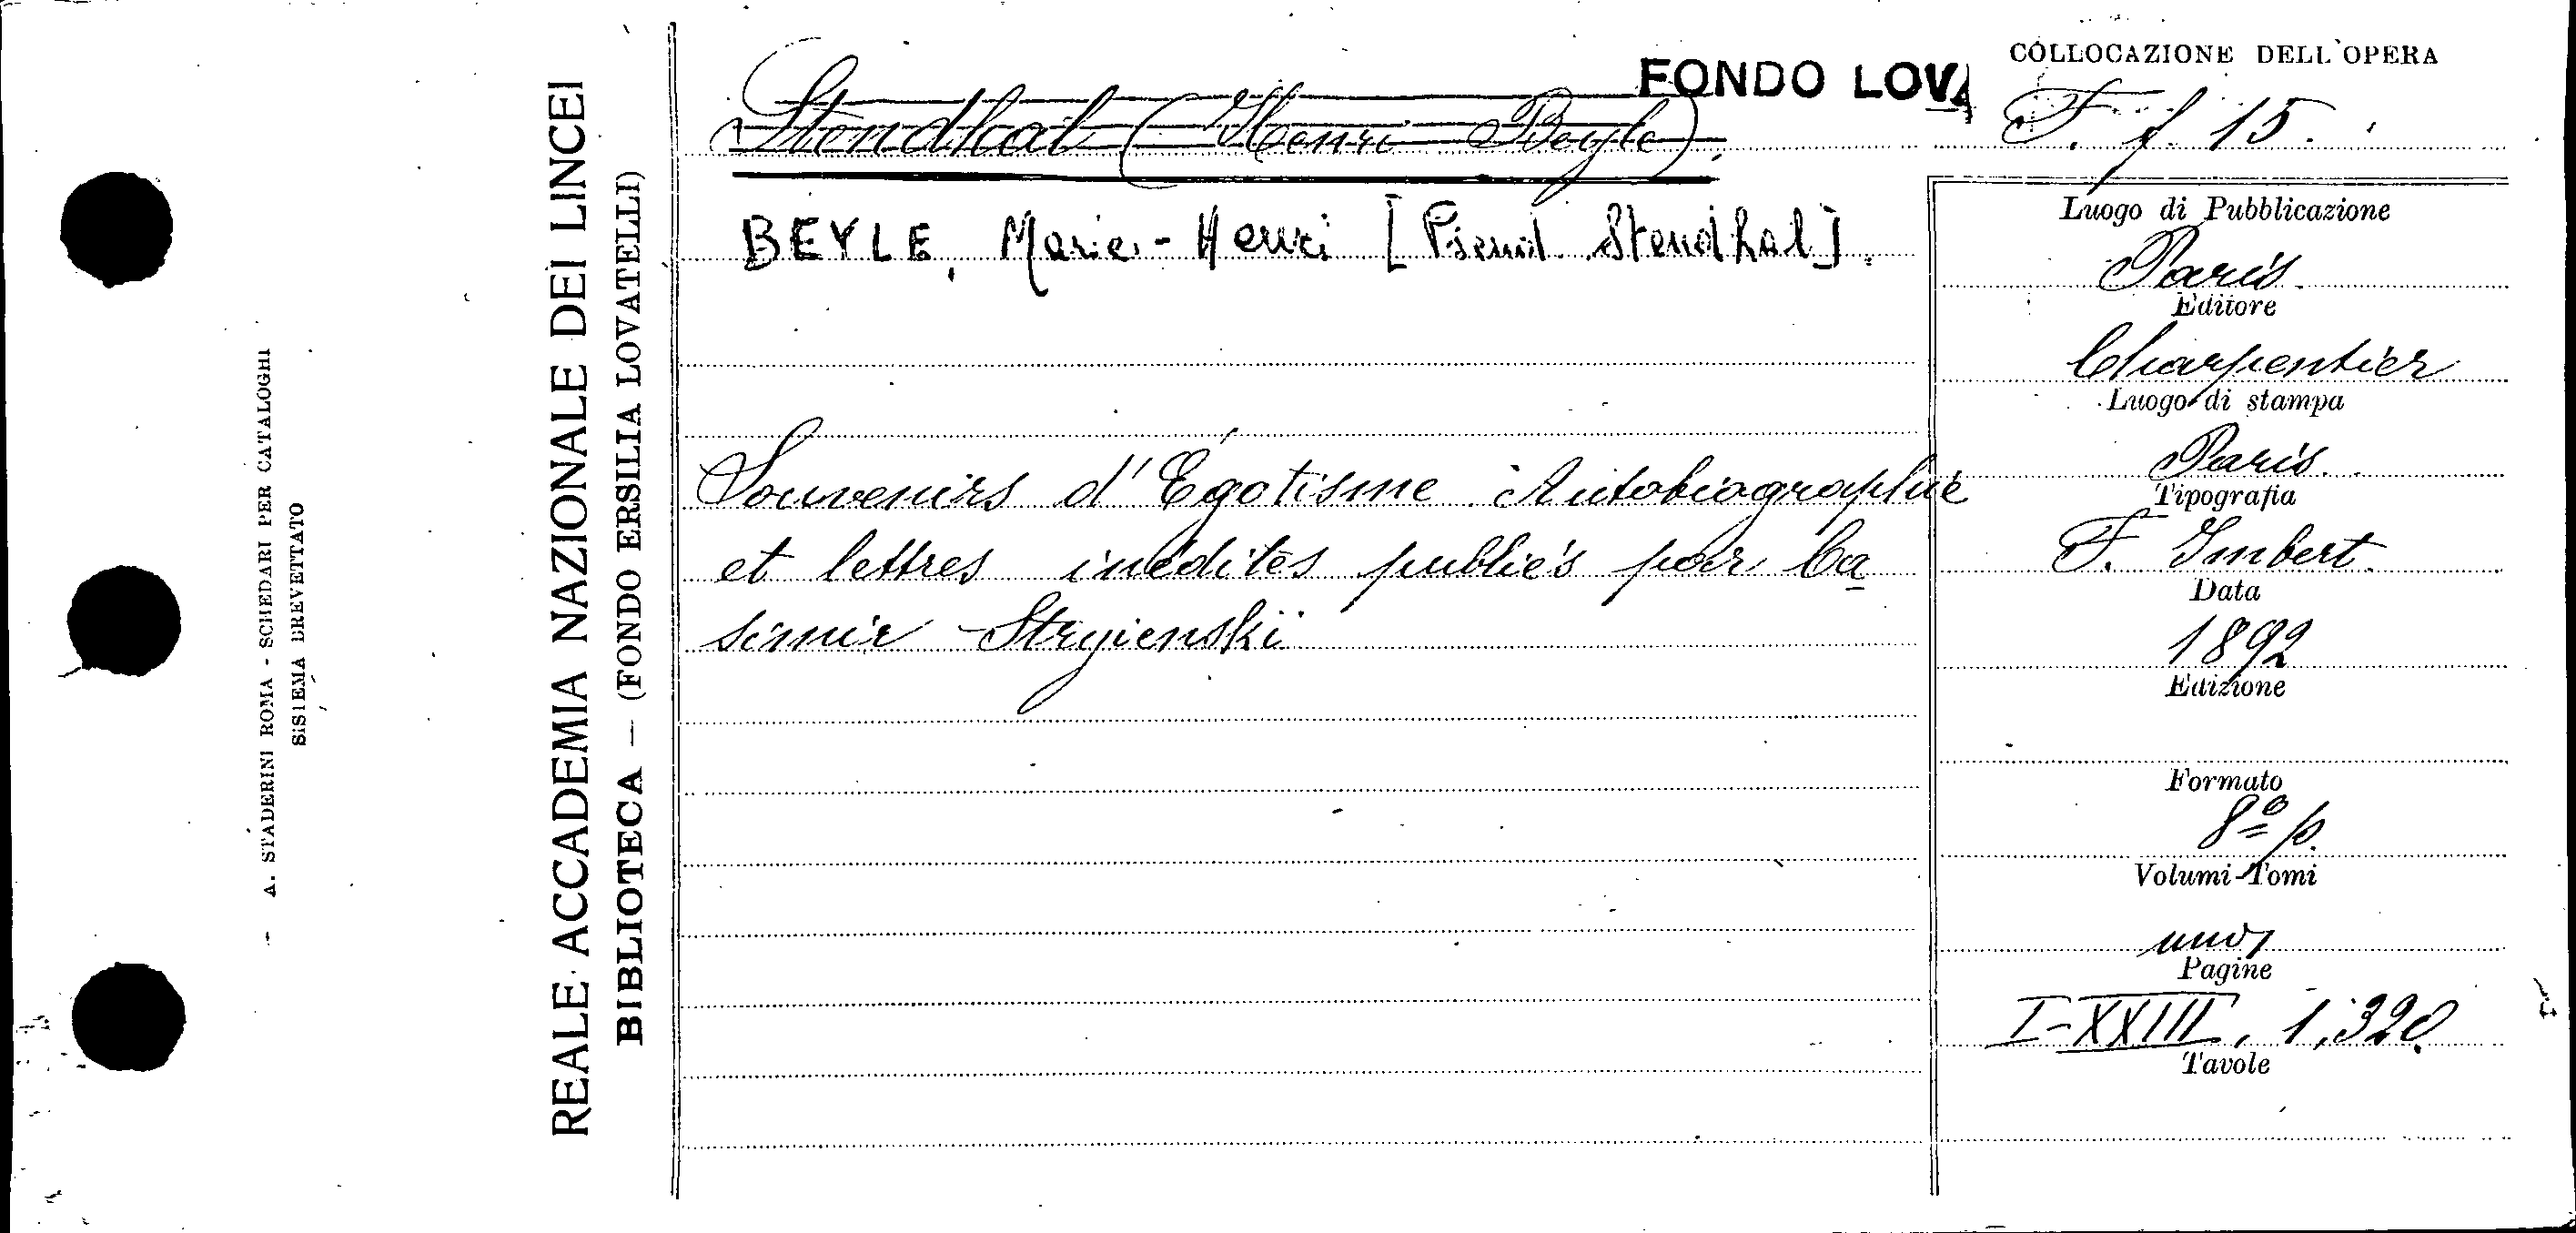 A. STADERINI ROMA - SCHEDARI PER CATALOGHI
SISTEMA BREVETTATO
REALE ACCADEMIA NAZIONALE DEI LINCEI
BIBLIOTECA — (FONDO ERSILIA LOVATELLI)
FONDO LOVA
Stendhal (Henri Beyle).
BEYLE, Marie-Henri [Pseud. Stendhal].
Souvenirs d'Égotisme Autobiographie
et lettres inédites publiés par Ca
simir Stryienski
COLLOCAZIONE DELL'OPERA
F. f. 15.
Luogo di Pubblicazione
Paris.
Editore
Charpentier
Luogo di stampa
Paris.
Tipografia
F. Imbert.
Data
1892
Edizione
Formato
8º p.
Volumi-Tomi
uno
Pagine
I-XXIII, 1,320.
Tavole